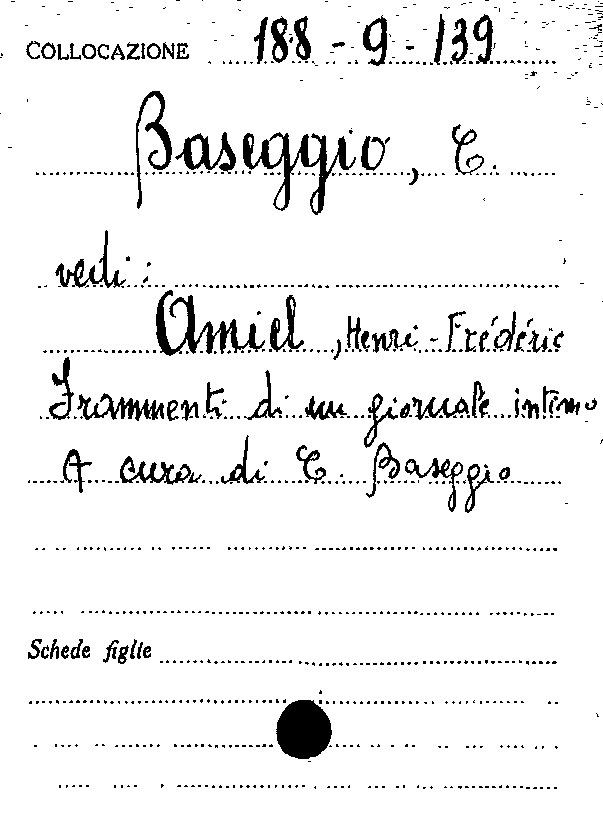 COLLOCAZIONE 188-9-139
Baseggio, C.
vedi:
Amiel, Henri-Frédéric
Frammenti di un giornale intimo
A cura di C. Baseggio
Schede figlie